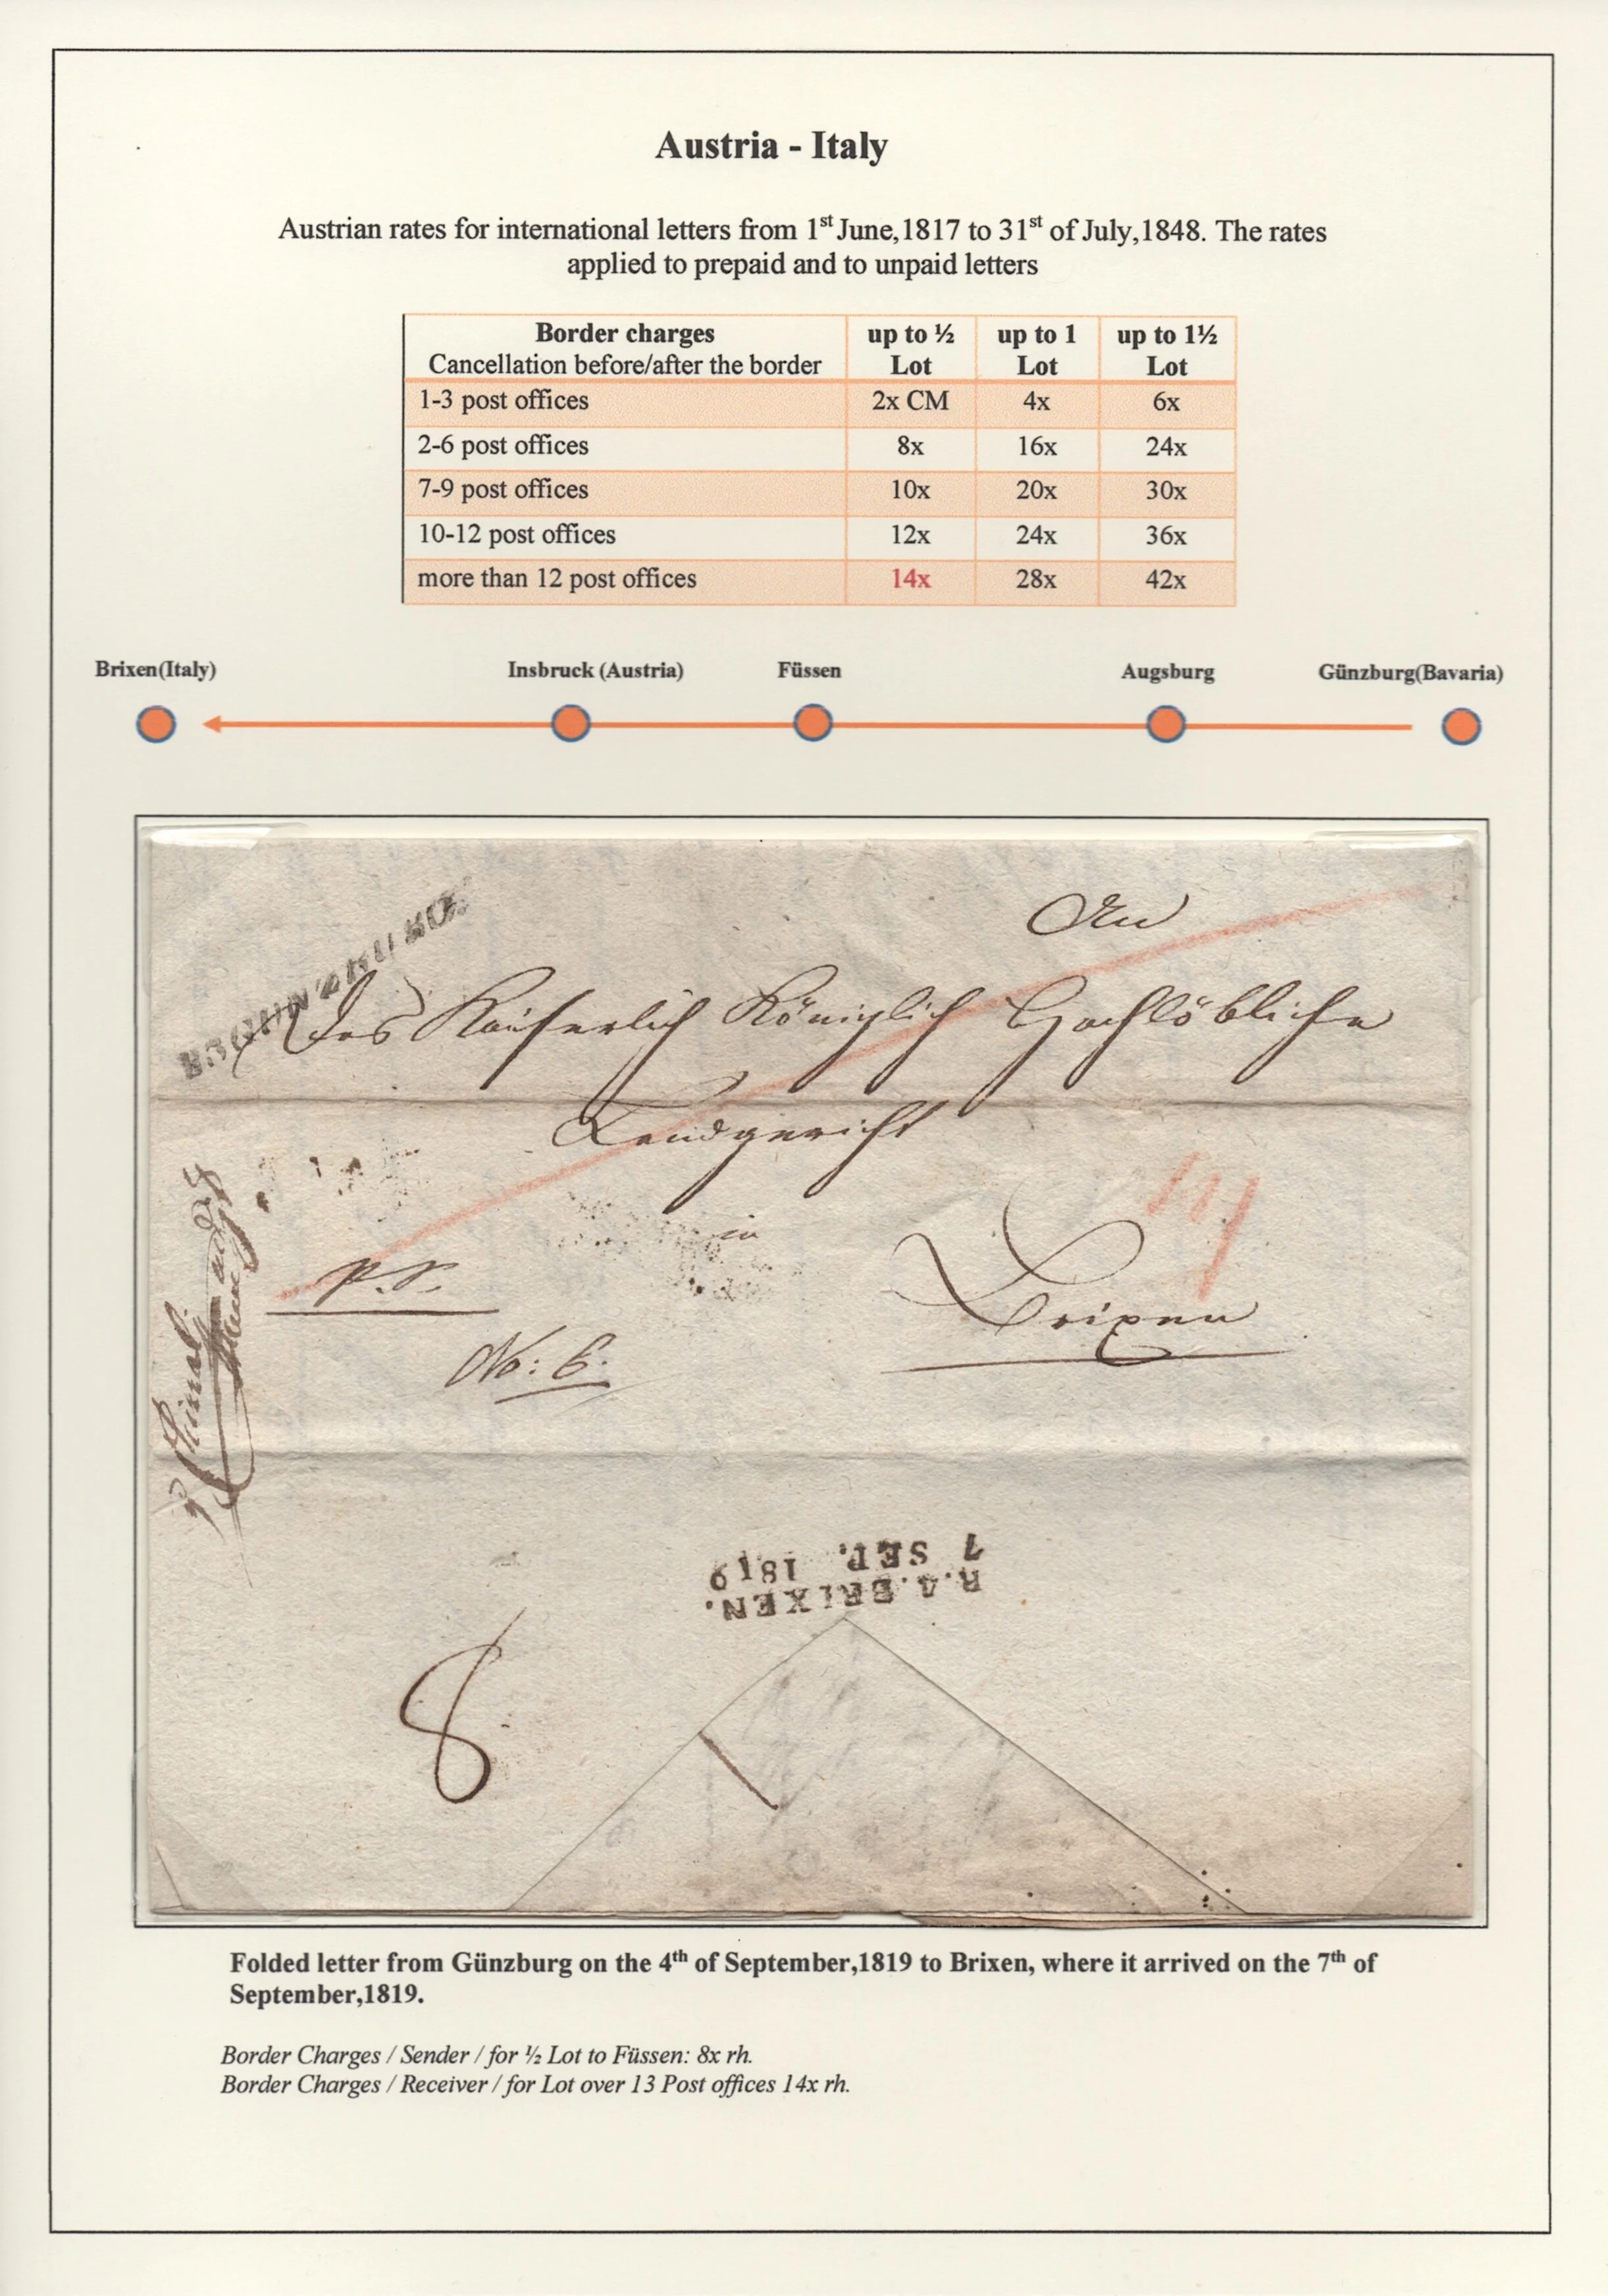 Austria - Italy
Austrian rates for international letters from 1st June,1817 to 31st of July,1848. The rates
applied to prepaid and to unpaid letters
Border charges up to ½ up to 1 up to 1½
Cancellation before/after the border Lot Lot Lot
1-3 post offices 2x CM 4x 6x
2-6 post offices 8x 16x 24x
7-9 post offices 10x 20x 30x
10-12 post offices 12x 24x 36x
more than 12 post offices 14x 28x 42x
Brixen(Italy) Insbruck (Austria) Füssen Augsburg Günzburg(Bavaria)
An
Das Kaiserlich Königlich Hochlöbliche
Landgericht
in
14
P.S.
Brixen
No: 6.
7 SEP. 1819
R.4.BRIXEN.
8
Folded letter from Günzburg on the 4th of September,1819 to Brixen, where it arrived on the 7th of
September,1819.
Border Charges / Sender / for ½ Lot to Füssen: 8x rh.
Border Charges / Receiver / for Lot over 13 Post offices 14x rh.